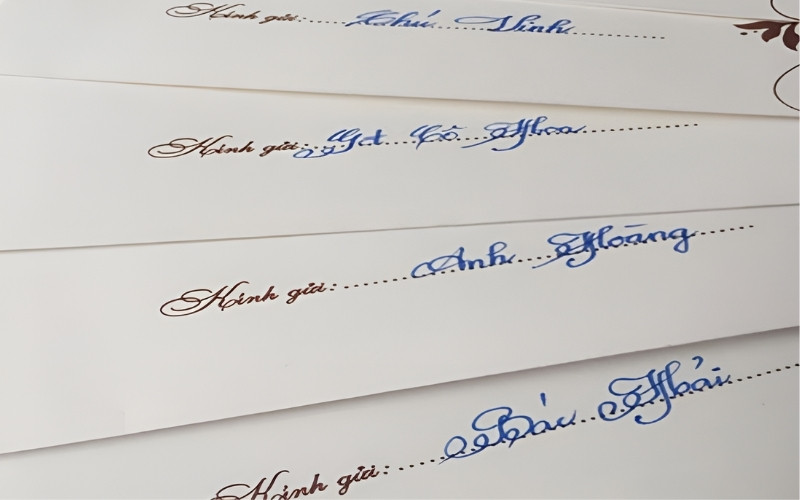 Kính gửi:......Chú.............
Kính gửi:...Gđ...Cô...Hoa...............
Kính gửi:.......Anh...Hoàng........
Kính gửi:....Bác...Hải.........